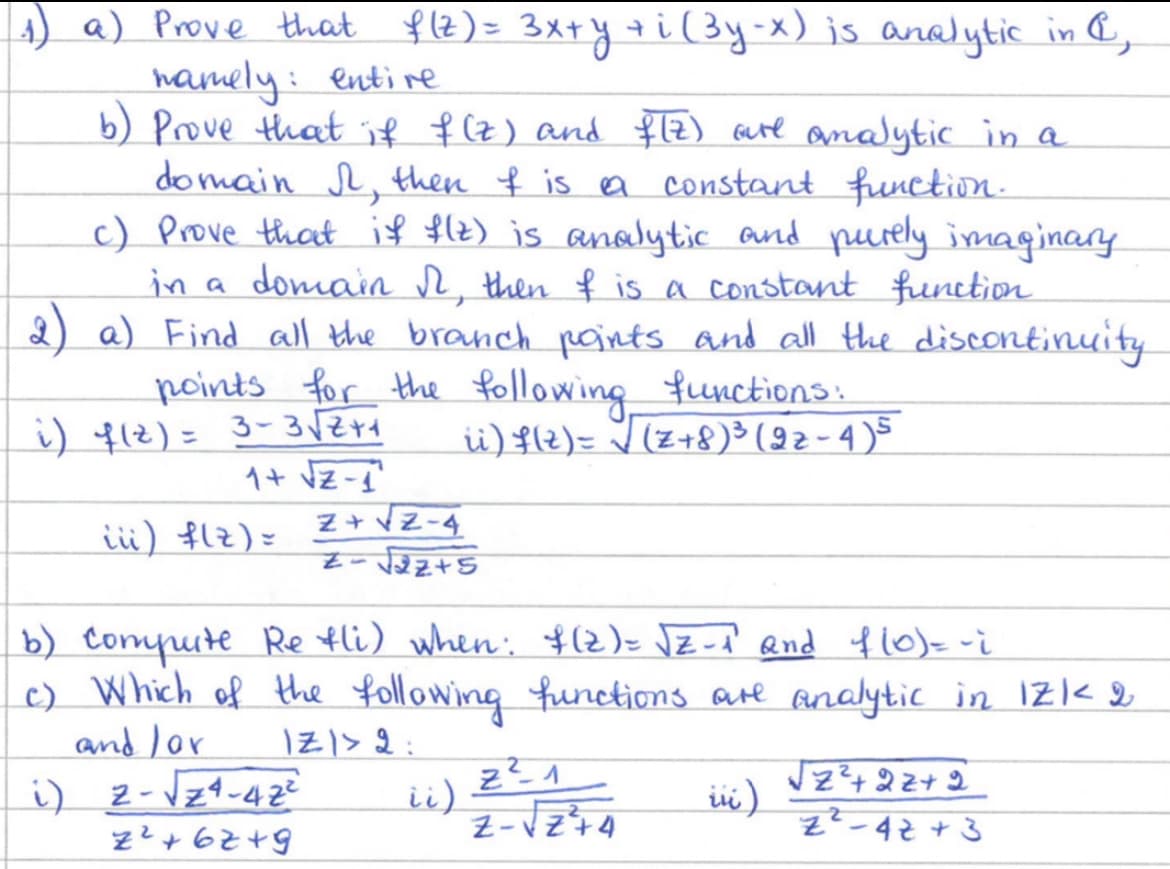 1) a) Prove that f(z) = 3x+y + i(3y-x) is analytic in ℂ,
namely: entire
b) Prove that if f(z) and \overline{f(z)} are analytic in a
domain Ω, then f is a constant function.
c) Prove that if f(z) is analytic and purely imaginary
in a domain Ω, then f is a constant function
2) a) Find all the branch points and all the discontinuity
points for the following functions:
i) f(z) = \frac{3-3\sqrt{z+1}}{1+\sqrt{z-1}} ii) f(z) = \sqrt{(z+8)^3(2z-4)^5}
iii) f(z) = \frac{z+\sqrt{z-4}}{z-\sqrt{2z+5}}
b) Compute Re f(i) when: f(z) = \sqrt{z-1} and f(0) = -i
c) Which of the following functions are analytic in |z| < 2
and/or |z| > 2:
i) \frac{z-\sqrt{z^4-4z^2}}{z^2+6z+9} ii) \frac{z^2-1}{z-\sqrt{z^2+4}} iii) \frac{\sqrt{z^2+2z+2}}{z^2-4z+3}